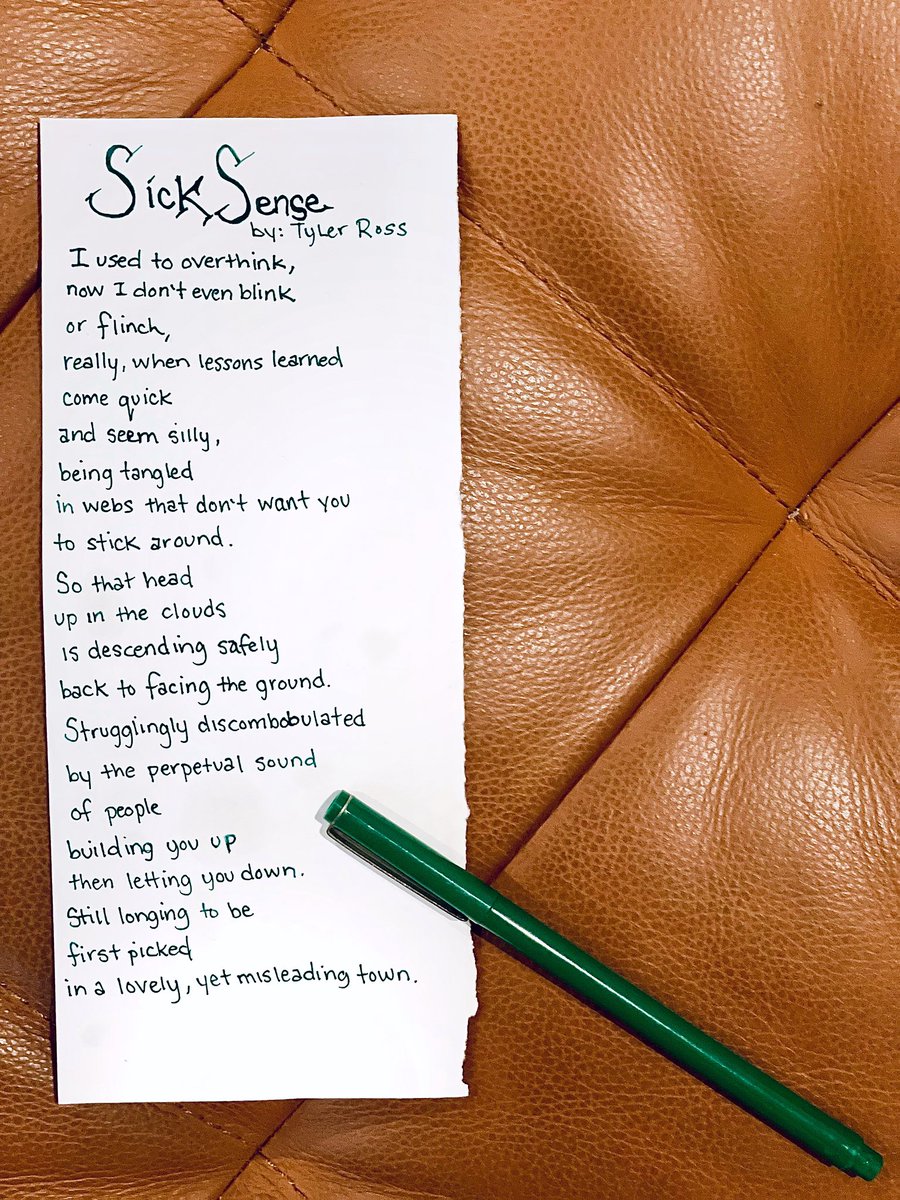 Sick Sense
by: Tyler Ross
I used to overthink,
now I don't even blink
or flinch,
really, when lessons learned
come quick
and seem silly,
being tangled
in webs that don't want you
to stick around.
So that head
up in the clouds
is descending safely
back to facing the ground.
Strugglingly discombobulated
by the perpetual sound
of people
building you up
then letting you down.
Still longing to be
first picked
in a lovely, yet misleading town.